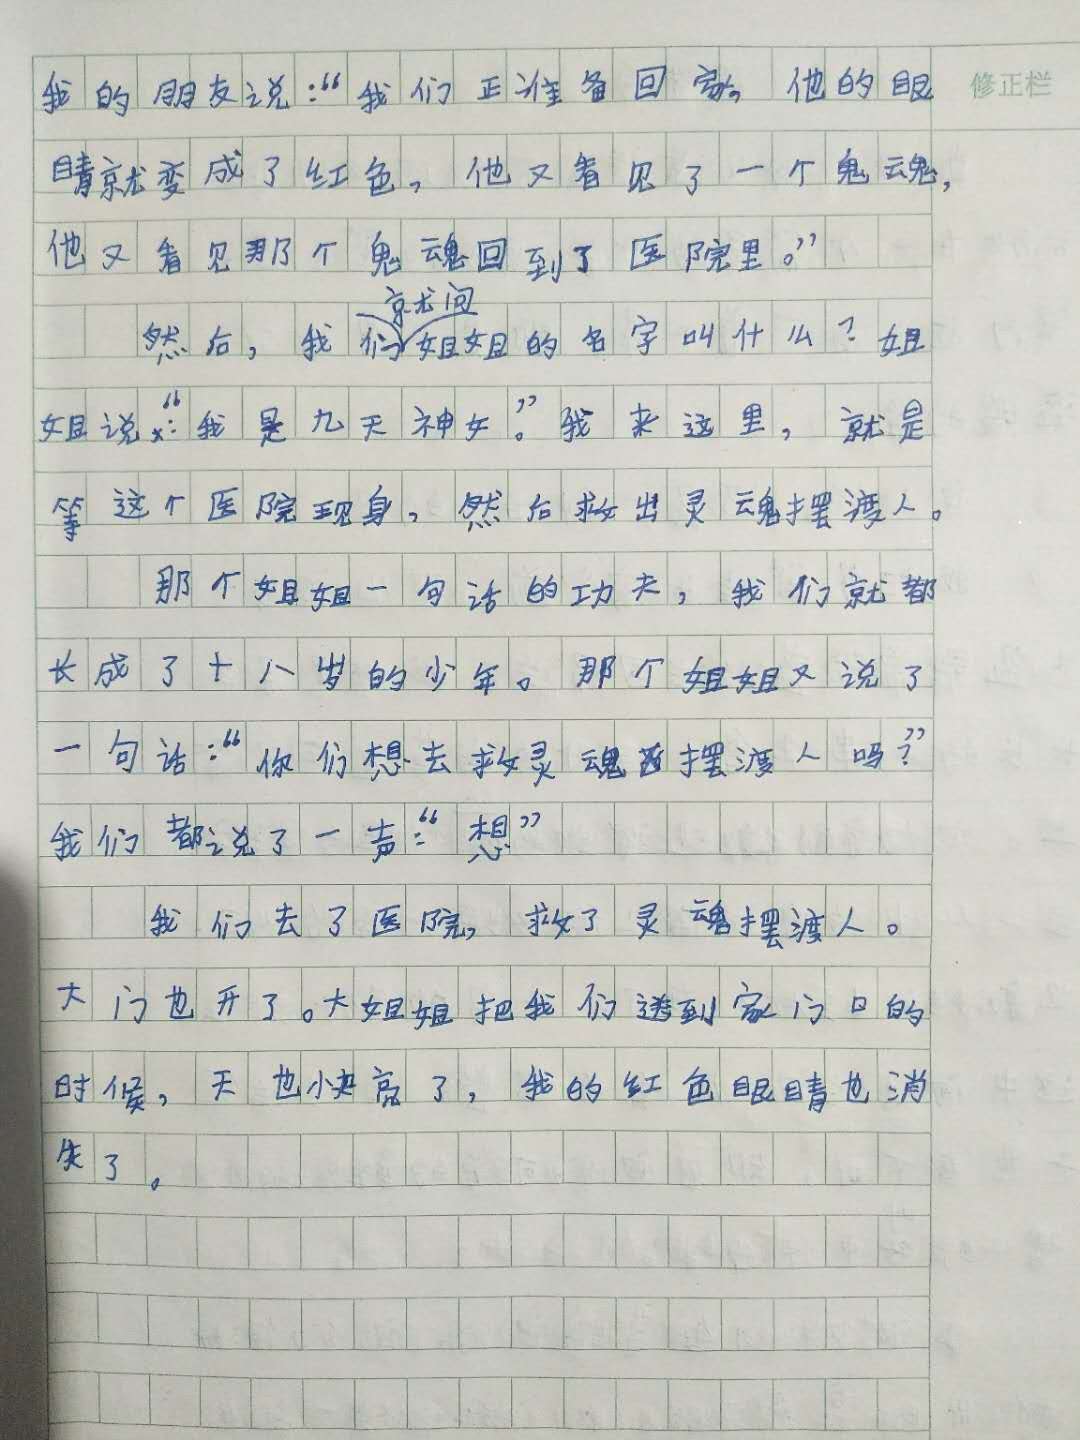 我的朋友说:“我们正准备回家,他的眼
修正栏
睛就变成了红色,他又看见了一个鬼魂,
他又看见那个鬼魂回到了医院里。”
然后,我们就问姐姐的名字叫什么?姐
姐说:“我是九天神女”。我来这里,就是
等这个医院现身,然后救出灵魂摆渡人。
那个姐姐一句话的功夫,我们就都
长成了十八岁的少年。那个姐姐又说了
一句话:“你们想去救灵魂摆渡人吗?”
我们都说了一声:“想”
我们去了医院,救了灵魂摆渡人。
大门也开了。大姐姐把我们送到家门口的
时候,天也快亮了,我的红色眼睛也消
失了。